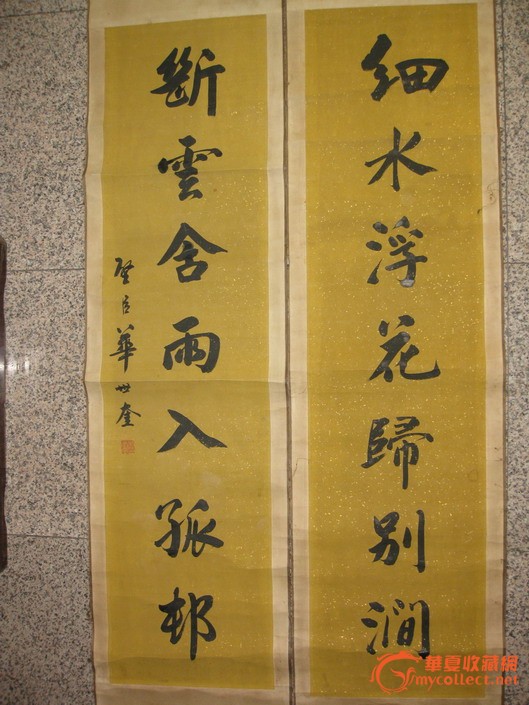 細水浮花歸別澗
斷雲含雨入孤邨
璧臣華世奎
華夏收藏網
mycollect.com